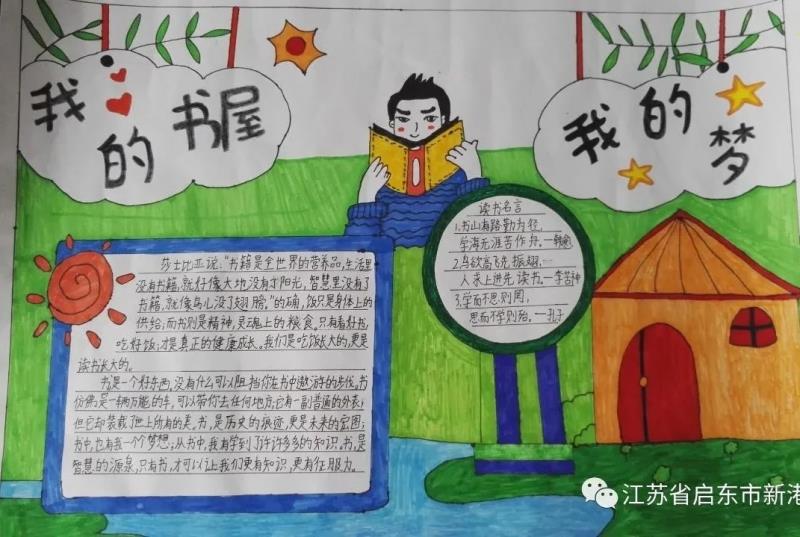 我的书屋
我的梦
莎士比亚说:“书籍是全世界的营养品,生活里
没有书籍,就好像大地没有了阳光,智慧里没有了
书籍,就像鸟儿没了翅膀,”的确,饭只是身体上的
供给;而书则是精神,灵魂上的粮食。只有看好书,
吃好饭;才是真正的健康成长。我们是吃饭长大的,更是
读书长大的。
书是一个好东西,没有什么可以阻挡你在书中遨游的步伐。书
仿佛是一辆万能的车,可以带你去任何地底,它有一副普通的外表;
但它却装载了世上所有的美,书,是历史的痕迹,更是未来的宏图;
书中,也有我一个梦想;从书中,我有学到了许许多多的知识,书,是
智慧的源泉,只有书,才可以让我们更有知识,更有征服力。
读书名言
1.书山有路勤为径,
学海无涯苦作舟。—韩愈
2.鸟欲高飞先振翅,一
人求上进先读书。—李苦禅
3.学而不思则罔,
思而不学则殆。—孔子
江苏省启东市新港